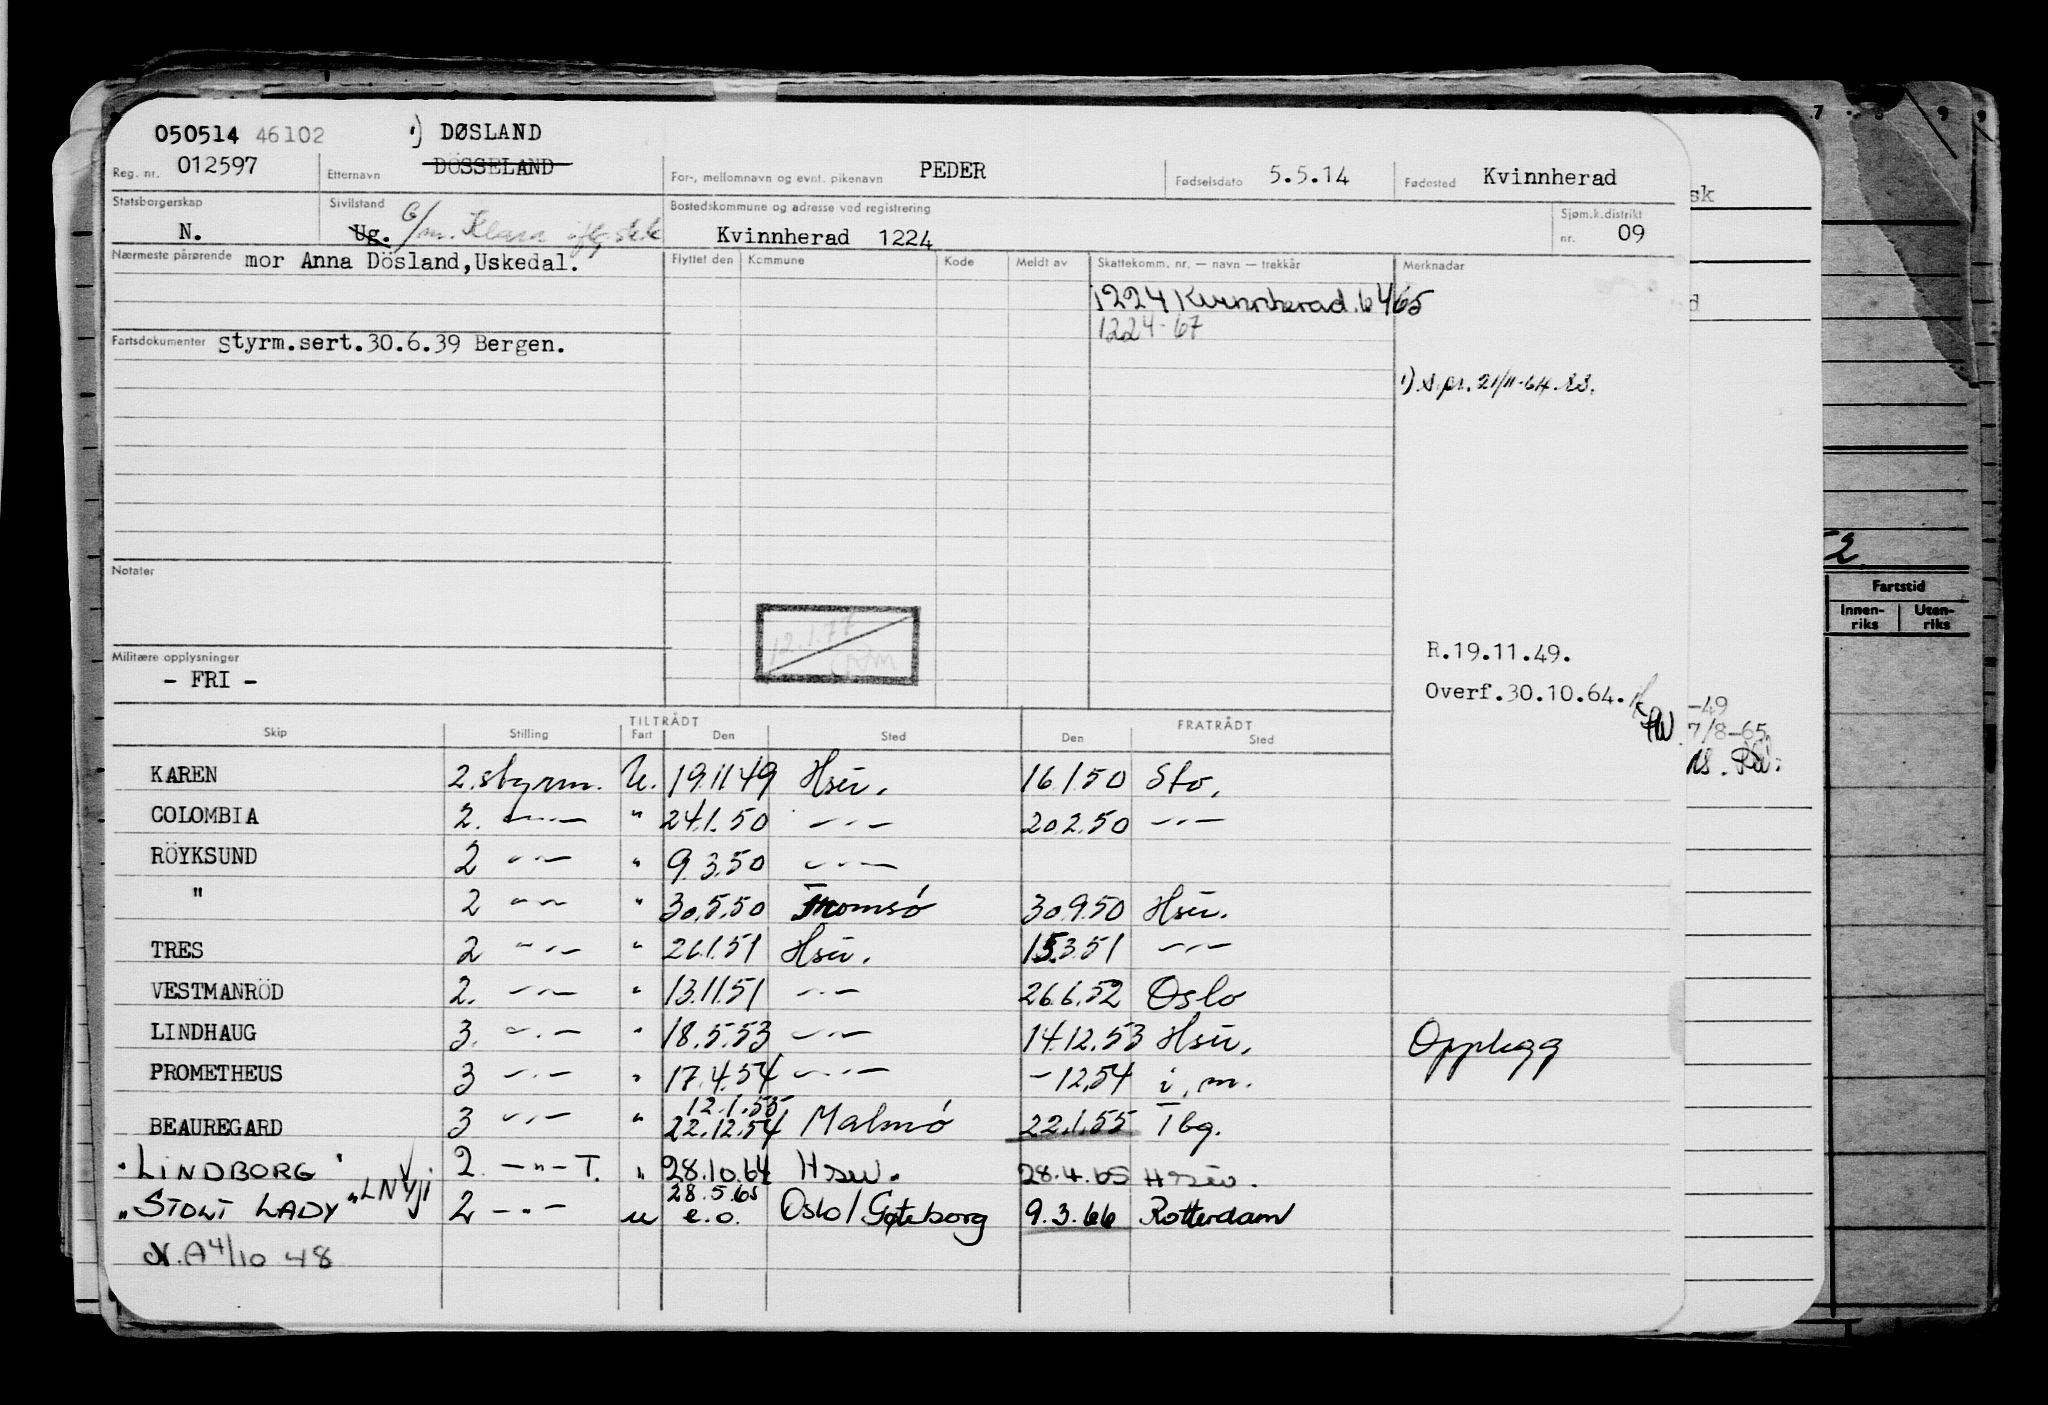 050514 46102 1) DØSLAND
Reg. nr. 012597 Etternavn DÖSSELAND For-, mellomnavn og evnt. pikenavn PEDER Fødselsdato 5.5.14 Fødested Kvinnherad
Statsborgerskap N. Sivilstand Ug. G/m. Klara Bostedskommune og adresse ved registrering Kvinnherad 1224 Sjøm.k.distrikt nr. 09
Nærmeste pårørende mor Anna Dösland,Uskedal. Flyttet den Kommune Kode Meldt av Skattekomm. nr. — navn — trekkår Merknader
1224 Kvinnherad. 64 65
1224-67
Fartsdokumenter Styrm.sert.30.6.39 Bergen.
1) s. pr. 21/11-64.
Notater
12.1.77
Militære opplysninger
- FRI -
R.19.11.49.
Overf.30.10.64.
TILTRÅDT FRATRÅDT
Skip Stilling Fart Den Sted Den Sted
KAREN 2.styrm. U. 19.11.49 Hsu. 16.1.50 Sto.
COLOMBIA 2. —"— " 24.1.50 —"— 20.2.50 —"—
RÖYKSUND 2 —"— " 9.3.50 —"—
" 2 —"— " 30.5.50 Tromsö 30.9.50 Hsu.
TRES 2 —"— " 26.1.51 Hsu. 15.3.51 —"—
VESTMANRÖD 2. —"— " 13.11.51 —"— 26.6.52 Oslo
LINDHAUG 3. —"— " 18.5.53 —"— 14.12.53 Hsu. Opplegg
PROMETHEUS 3 —"— " 17.4.54 —"— - 12.54 i. m.
12.1.55
BEAUREGARD 3 —"— " 22.12.54 Malmö 22.1.55 Tbg.
"LINDBORG" 2. —"— T. " 28.10.64 Hsu. 28.4.65 Hsu.
28.5.65
"STOLT LADY" 2 —"— u e.o. Oslo/Gøteborg 9.3.66 Rotterdam
N.A 4/10 48
sk
d
-49
7/8-65
52
Fartstid
Innen-riks Uten-riks
7 8 9